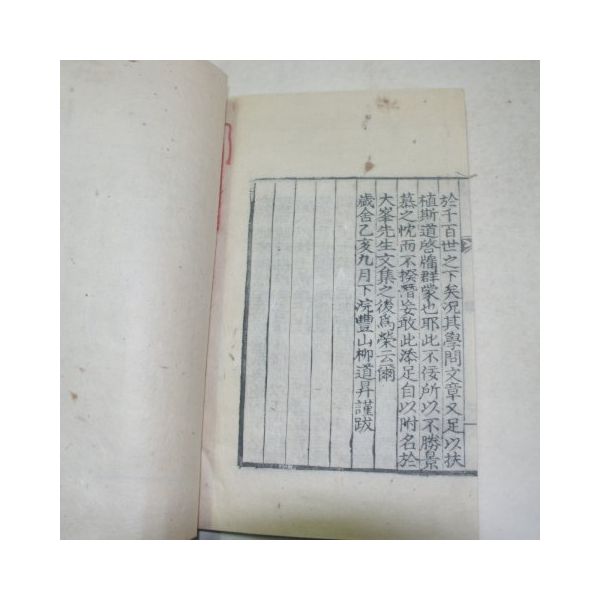 於千百世之下矣況其學問文章又足以扶
植斯道啓牖群蒙也耶此不佞所以不勝景
慕之忱而不揆潛妄敢此添足自以附名於
大峯先生文集之後爲榮云爾
歲舍乙亥九月下浣豐山柳道昇謹跋